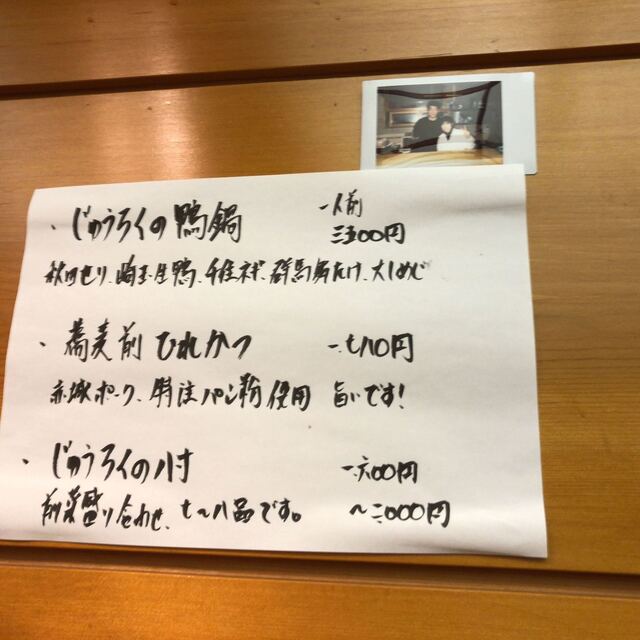 ・じゅうろくの鴨鍋 一人前
三五00円
秋田せり、埼玉生鴨、千住ネギ、群馬舞たけ、大しめじ
・蕎麦前 ひれかつ 一.七八0円
赤城ポーク、特注パン粉使用 旨いです!
・じゅうろくの八寸 一.六00円
前菜盛り合わせ、七〜八品です。 〜二.000円